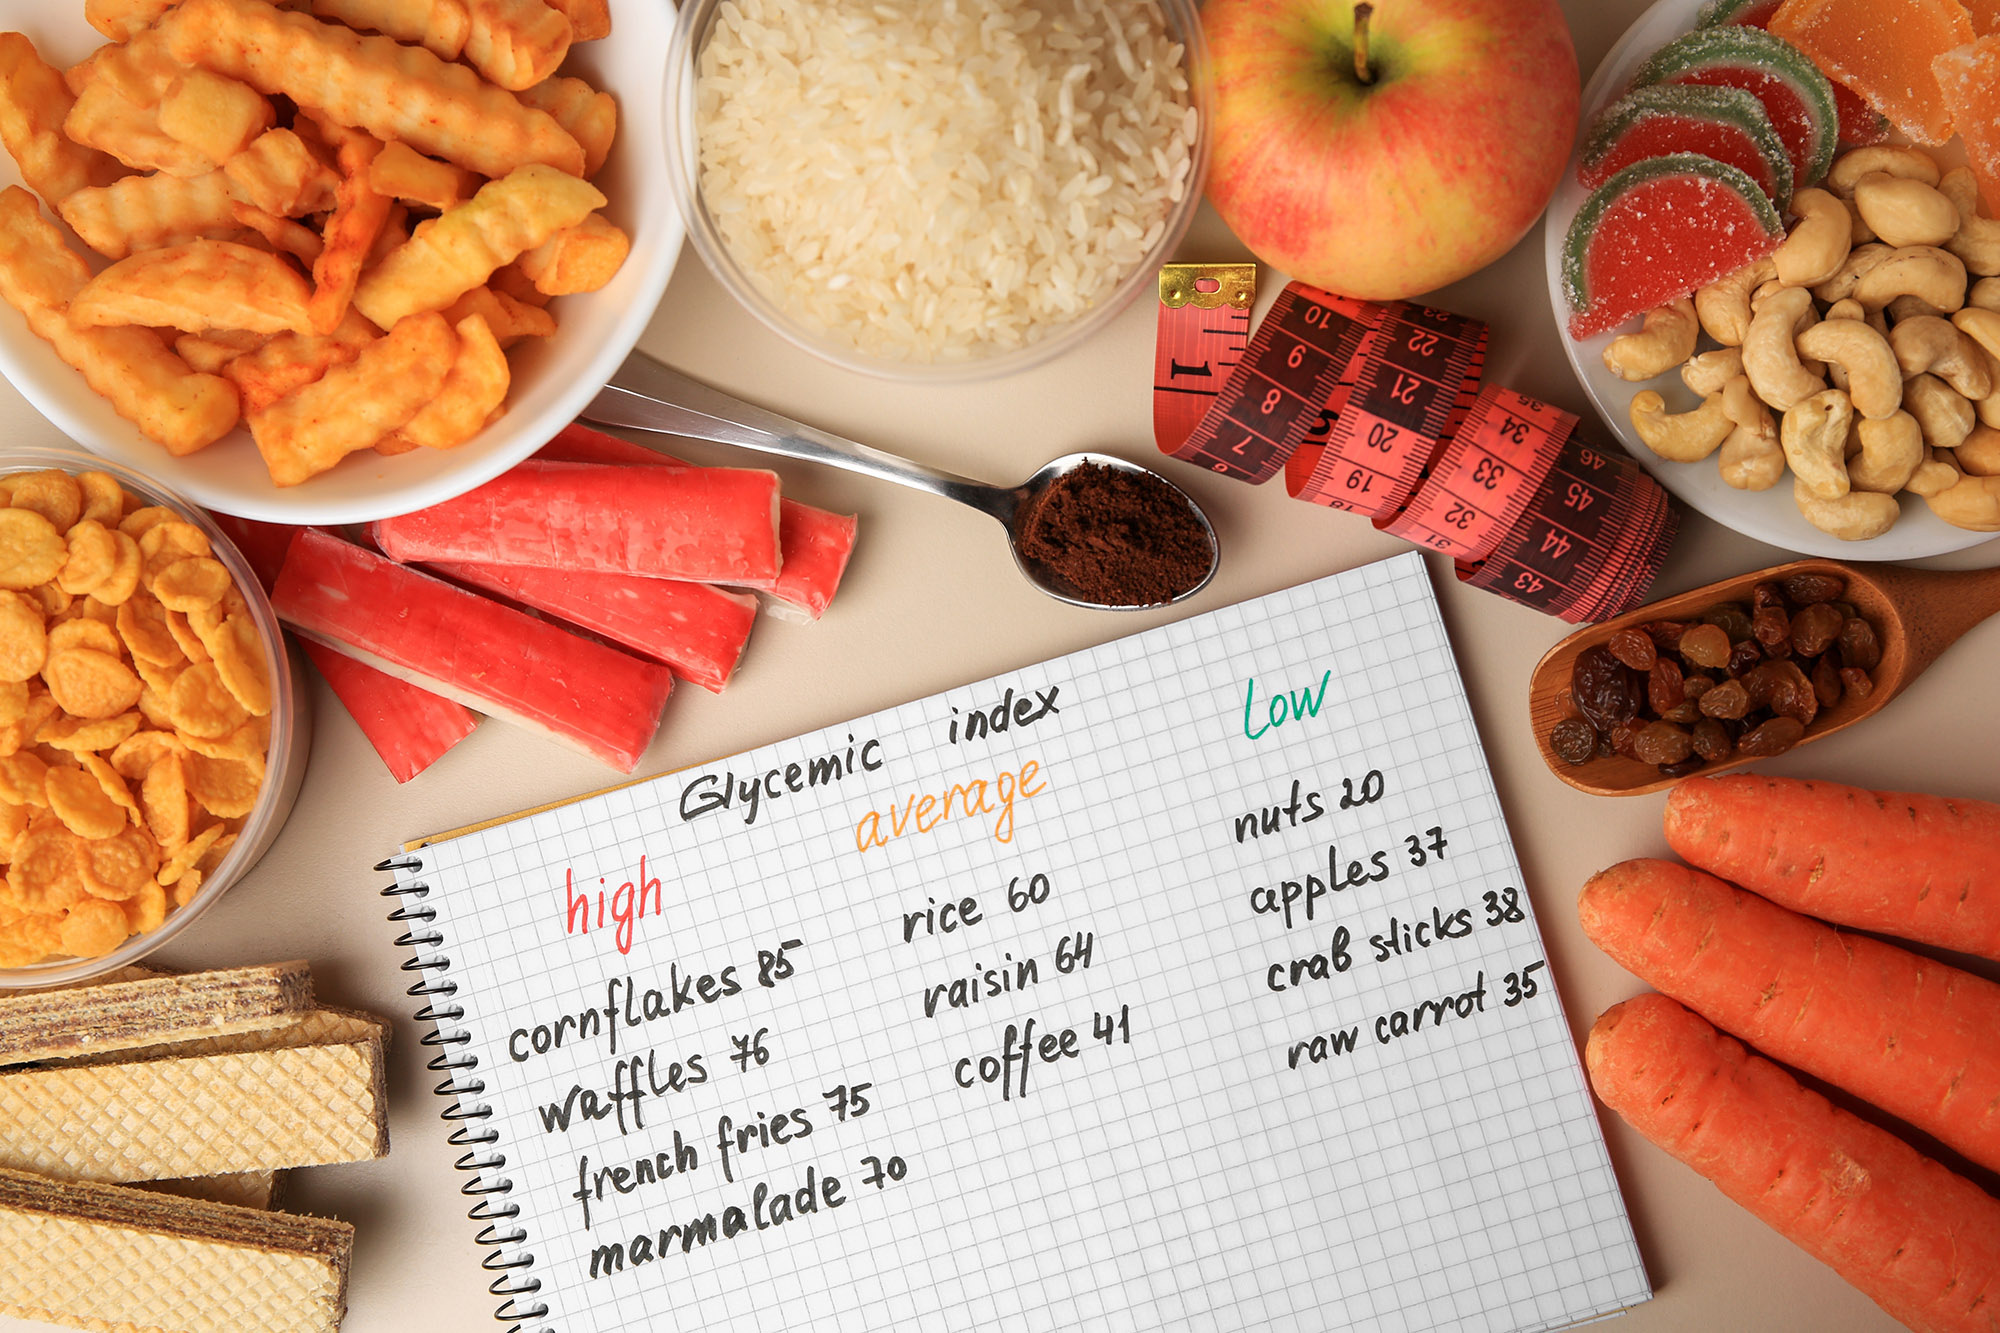 Glycemic index
high
cornflakes 85
waffles 76
french fries 75
marmalade 70
average
rice 60
raisin 64
coffee 41
Low
nuts 20
apples 37
crab sticks 38
raw carrot 35
1
10
9
8
7
6
22
21
20
19
18
35
34
33
32
31
46
45
44
43